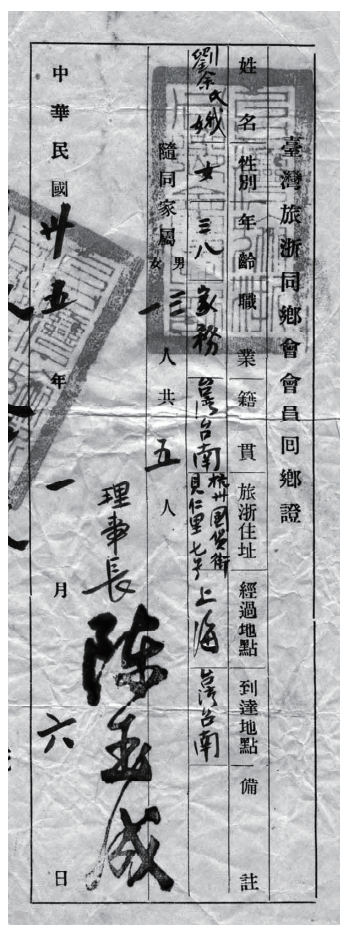 臺灣旅浙同鄉會會員回鄉證
姓名 性別 年齡 職業 籍貫 旅浙住址 經過地點 到達地點 備註
劉余文娥 女 三八 家務 台灣台南 杭州國貨街 見仁里七号 上海 台灣台南
隨同家屬 男三 女一 人共五人
理事長 陈玉成
中華民國卅五年一月六日